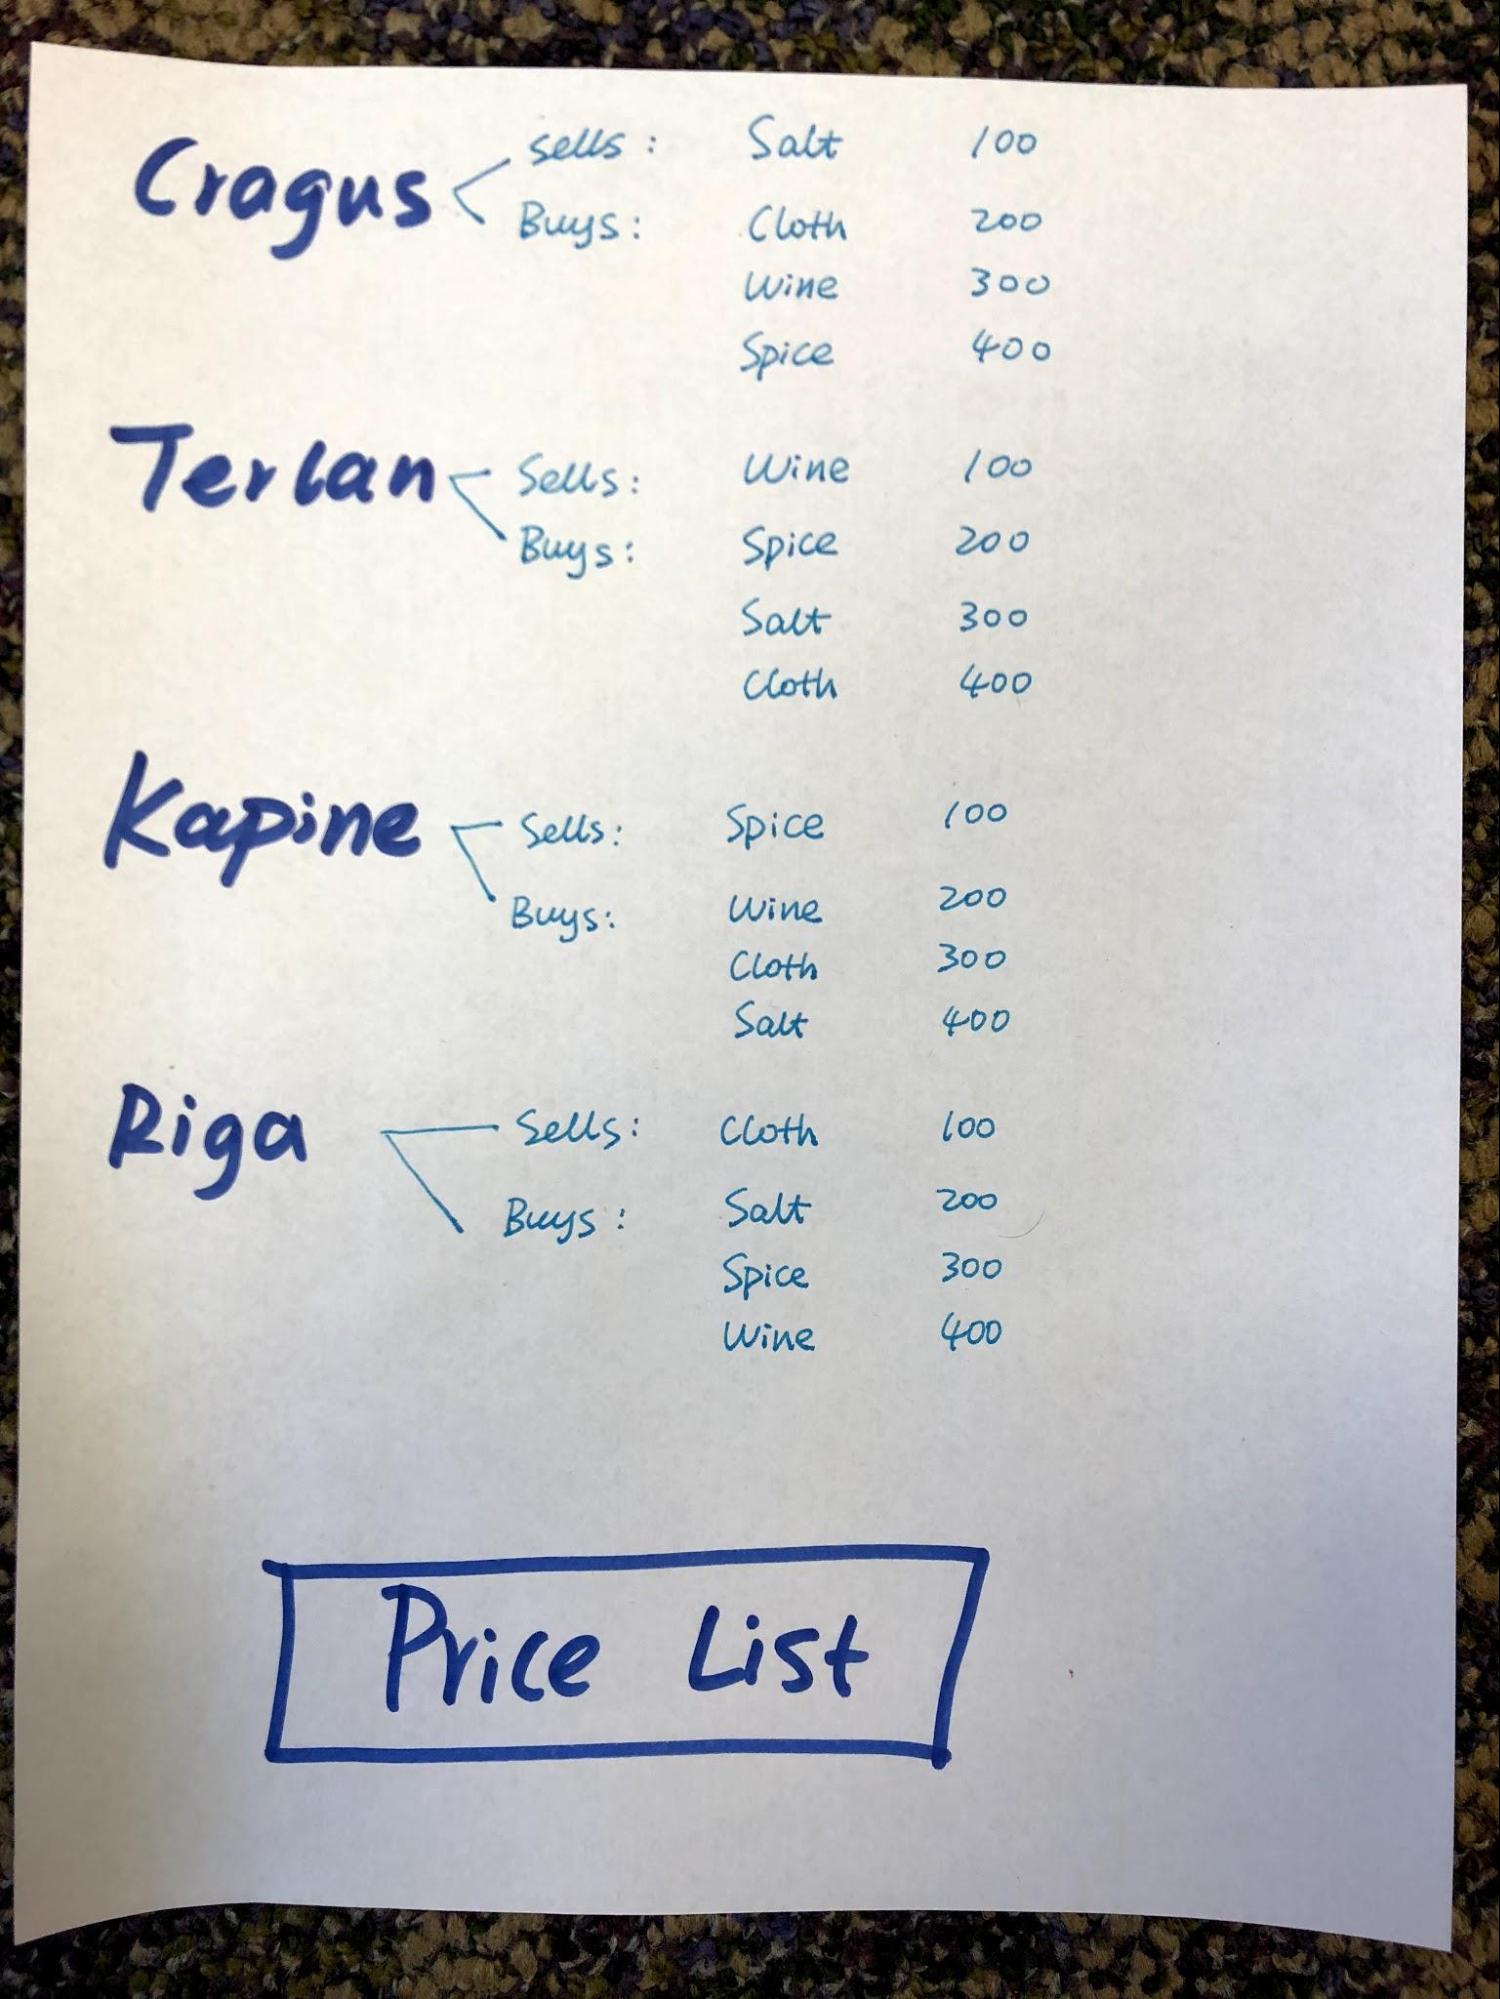 Cragus sells: Salt 100
Buys: Cloth 200
Wine 300
Spice 400
Terlan Sells: Wine 100
Buys: Spice 200
Salt 300
Cloth 400
Kapine Sells: Spice 100
Buys: Wine 200
Cloth 300
Salt 400
Riga Sells: Cloth 100
Buys: Salt 200
Spice 300
Wine 400
Price List